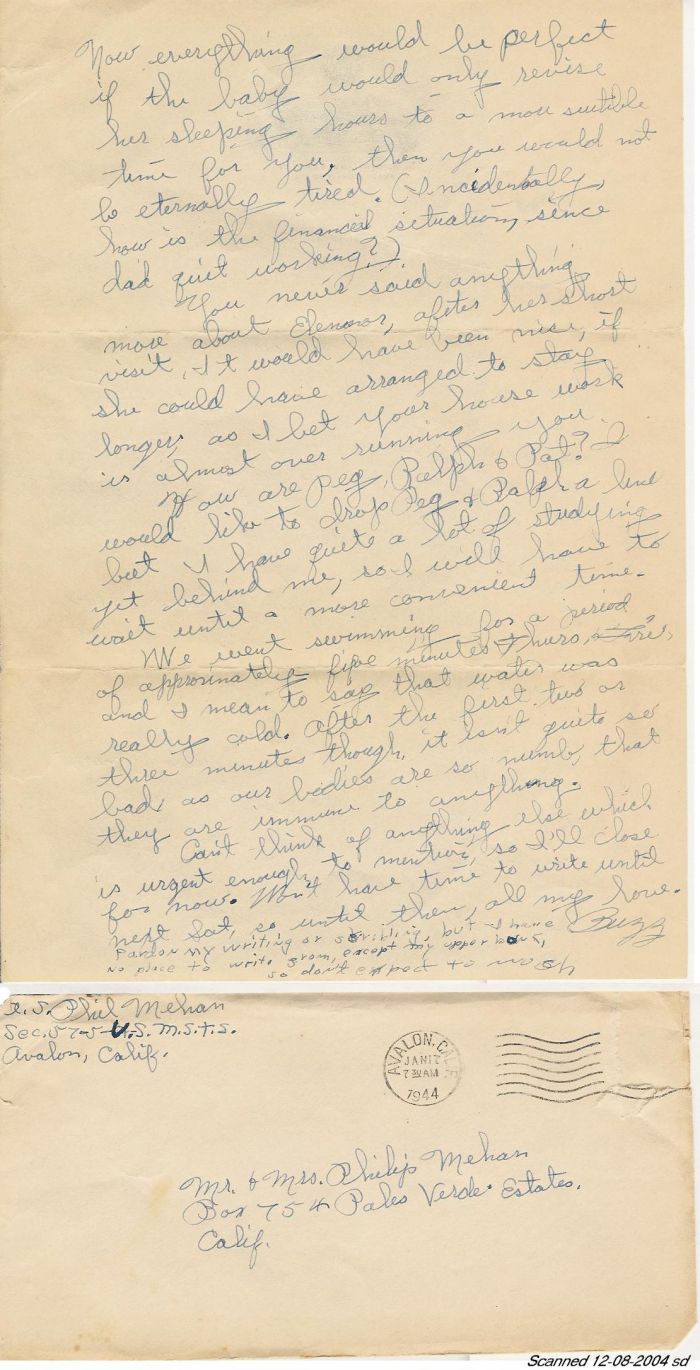 Now everything would be perfect
if the baby would only revise
her sleeping hours to a more suitible
time for you, then you would not
be eternally tired. (Incidentally,
how is the financial situation, since
dad quit working?)
You never said anything
more about Elenoor, after her short
visit. It would have been nice, if
she could have arranged to stay
longer, as I bet your house work
is almost over running you.
How are Peg, Ralph & Pat? I
would like to drop Peg & Ralph a line
but I have quite a lot of studying
yet behind me, so I will have to
wait until a more convenient time.
We went swimming for a period
of approximately five minutes Thurs, & Fri,
and I mean to say that water was
really cold. After the first two or
three minutes though, it isn't quite so
bad, as our bodies are so numb, that
they are immune to anything.
Can't think of anything else which
is urgent enough to mention, so I'll close
for now. Won't have time to write until
next Sat, so until then, all my love.
Buzz
Pardon my writing or scribling, but I have
no place to write from, except my upper bunk,
so don't expect to much
Phil Mehan
Sec. 57-5-U.S.M.S.T.S.
Avalon, Calif.
AVALON, CALIF.
JAN 17
7 30 AM
1944
Mr. & Mrs. Philip Mehan
Box 754 Palos Verde Estates.
Calif.
Scanned 12-08-2004 sd